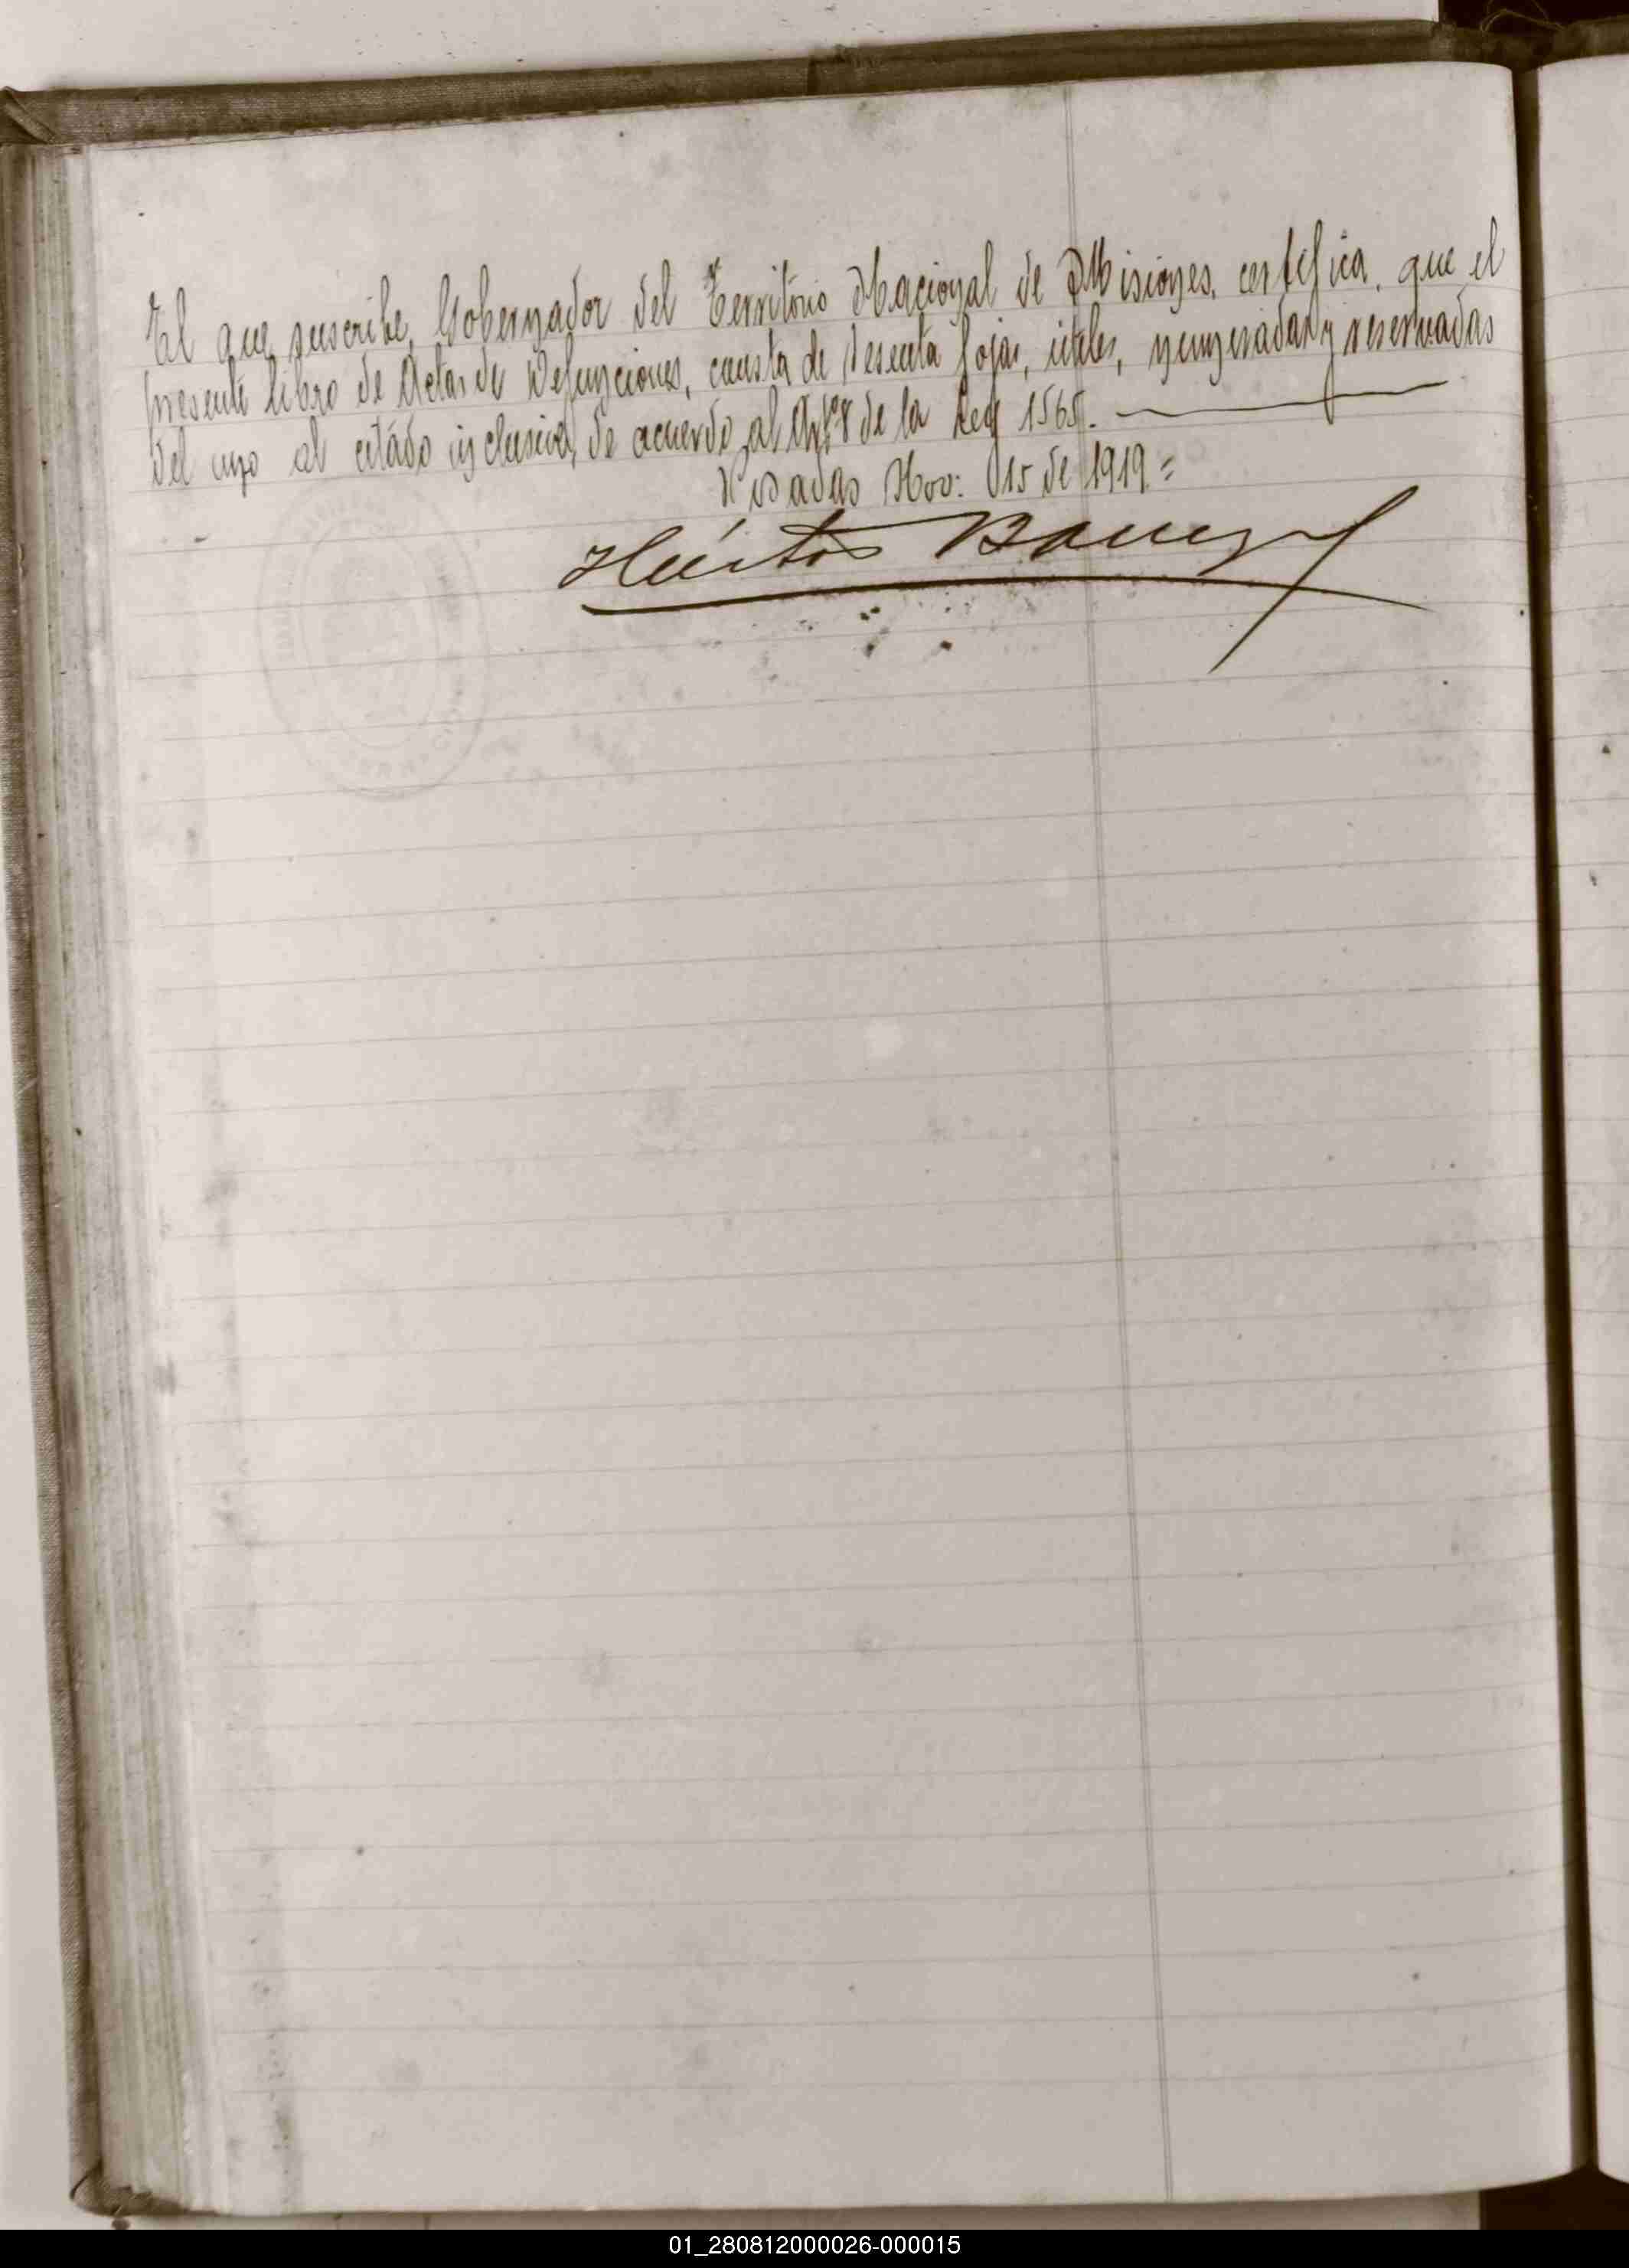 El que suscribe, Gobernador del Territorio Nacional de Misiones, certifica, que el
presente libro de Actas de Defunciones, consta de sesenta fojas, útiles, numeradas y reservadas
del uno al citado inclusive, de acuerdo al Art. 8 de la Ley 1565.
Posadas Nov: 15 de 1919 =
Héctor Barreyro
01_280812000026-000015